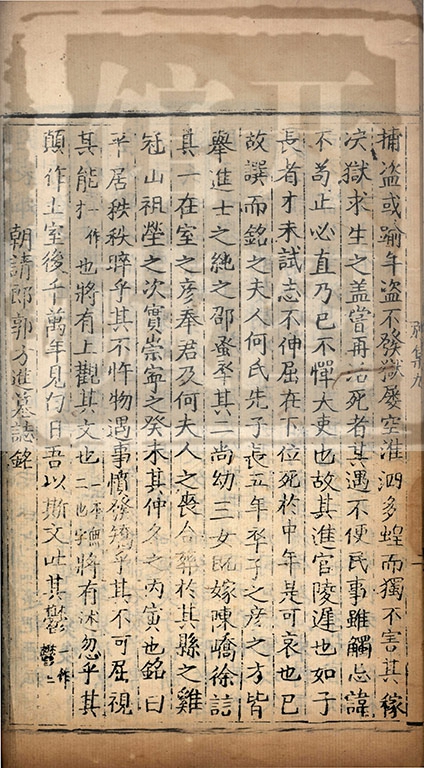 捕盗或踰年盗不發獄屡空淮泗多蝗而獨不害其稼
决獄求生之盖嘗再活死者其遇不便民事雖觸忌諱
不苟止必直乃已不憚大吏也故其進官陵遲也如子
長者才未試志不伸屈在下位死於中年是可哀也已
故譔而銘之夫人何氏先子長五年卒子之彦之方皆
舉進士之純之邵蚤卒其二尚幼三女既嫁陳嶠徐喆
其一在室之彦奉君及何夫人之喪合葬於其縣之雞
冠山祖塋之次實崇寧之癸未其仲冬之丙寅也銘曰
平居秩秩睟乎其不忤物遇事憤發矯乎其不可屈視
其能才一作也將有上觀其文也一無二也字將有沭忽乎其
顛作土室後千萬年見白日吾以斯文吐其鬱一作鬱二
朝請郎郭方進墓誌銘